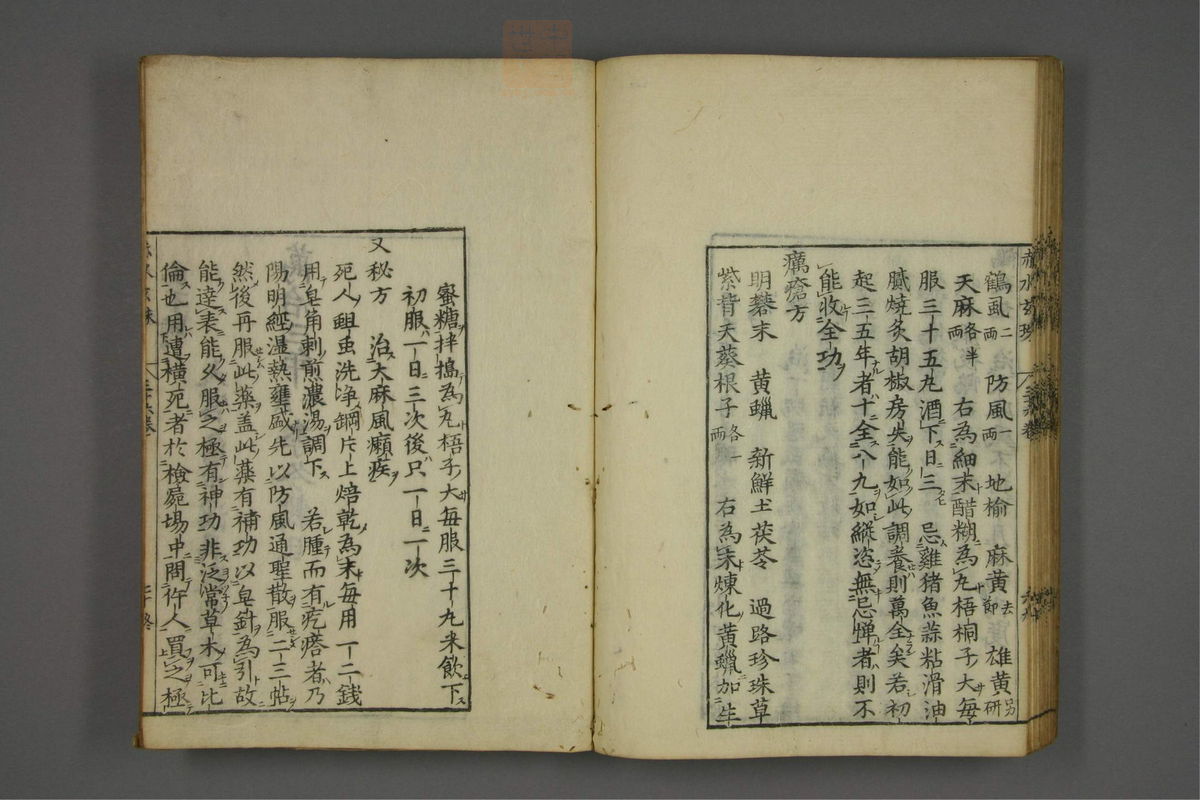 鶴虱二兩 防風一兩 地榆 麻黃去節 雄黃另研
天麻各半兩 右為細末醋糊為丸梧桐子大每
服三十五丸酒下日三 忌雞猪魚蒜粘滑油
膩燒炙胡椒房失能如此調養則萬全矣若初
起三五年者十全八九如縱恣無忌憚者則不
能收全功
癘瘡方
明礬末 黃蠟 新鮮土茯苓 過路珍珠草
紫背天葵根子各一兩 右為末煉化黃蠟加生
蜜糖拌搗為丸梧子大每服三十丸米飲下
初服一日三次後只一日一次
又秘方 治大麻風癩疾
死人蛆虫洗净銅片上焙乾為末每用一二錢
用皂角刺煎濃湯調下 若腫而有疙瘩者乃
陽明經湿熱壅盛先以防風通聖散服二三帖
然後再服此藥盖此藥有補功以皂針為引故
能逹表能久服之極有神功非泛常草木可比
倫也用遭橫死者於檢屍場中問仵人買之極